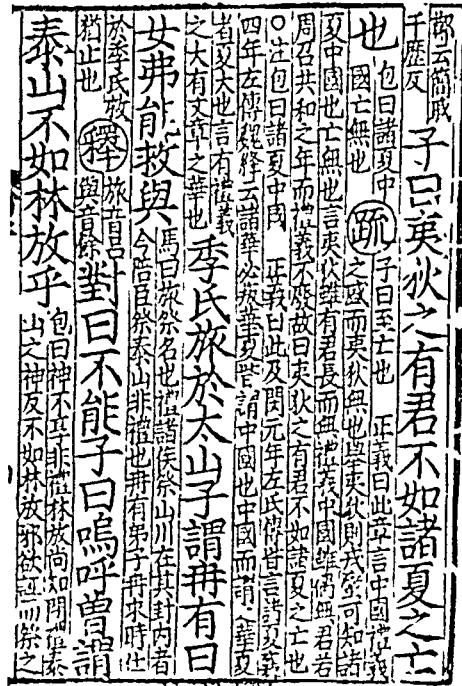 鄭云簡戚
千歷反
子曰夷狄之有君不如諸夏之亡
也
包曰諸夏中
國亡無也
疏
子曰至亡也 正義曰此章言中國禮義
之盛而夷狄無也舉夷狄則戎蠻可知諸
夏中國也亡無也言夷狄雖有君長而無禮義中國雖偶無君若
周召共和之年而禮義不廢故曰夷狄之有君不如諸夏之亡也
○注包曰諸夏中國 正義曰此及閔元年左氏傳皆言諸夏襄
四年左傳魏絳云諸華必叛華夏皆謂中國也中國而謂之華夏
者夏大也言有禮義
之大有文章之華也
季氏旅於太山子謂冉有曰
女弗能救與
馬曰旅祭名也禮諸侯祭山川在其封內者
今陪臣祭泰山非禮也冉有弟子冉求時仕
於季氏救
猶止也
釋
旅音呂
與音餘
對曰不能子曰嗚呼曾謂
泰山不如林放乎
包曰神不享非禮林放尚知問禮泰
山之神反不如林放邪欲誣而祭之